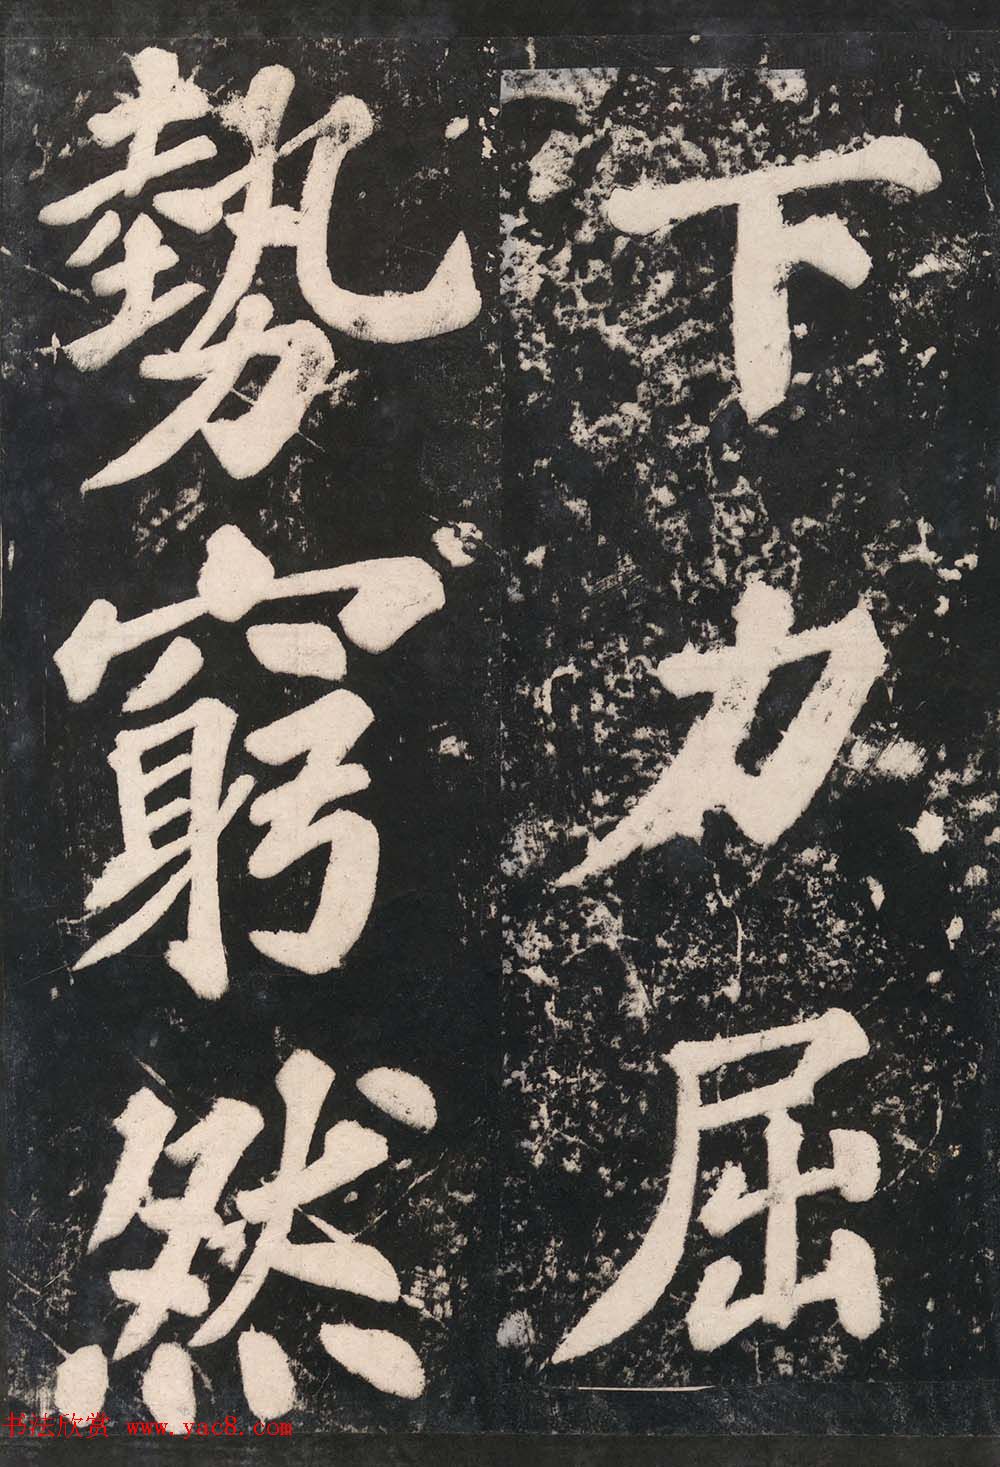 下力屈
勢窮然
书法欣赏 www.yac8.com